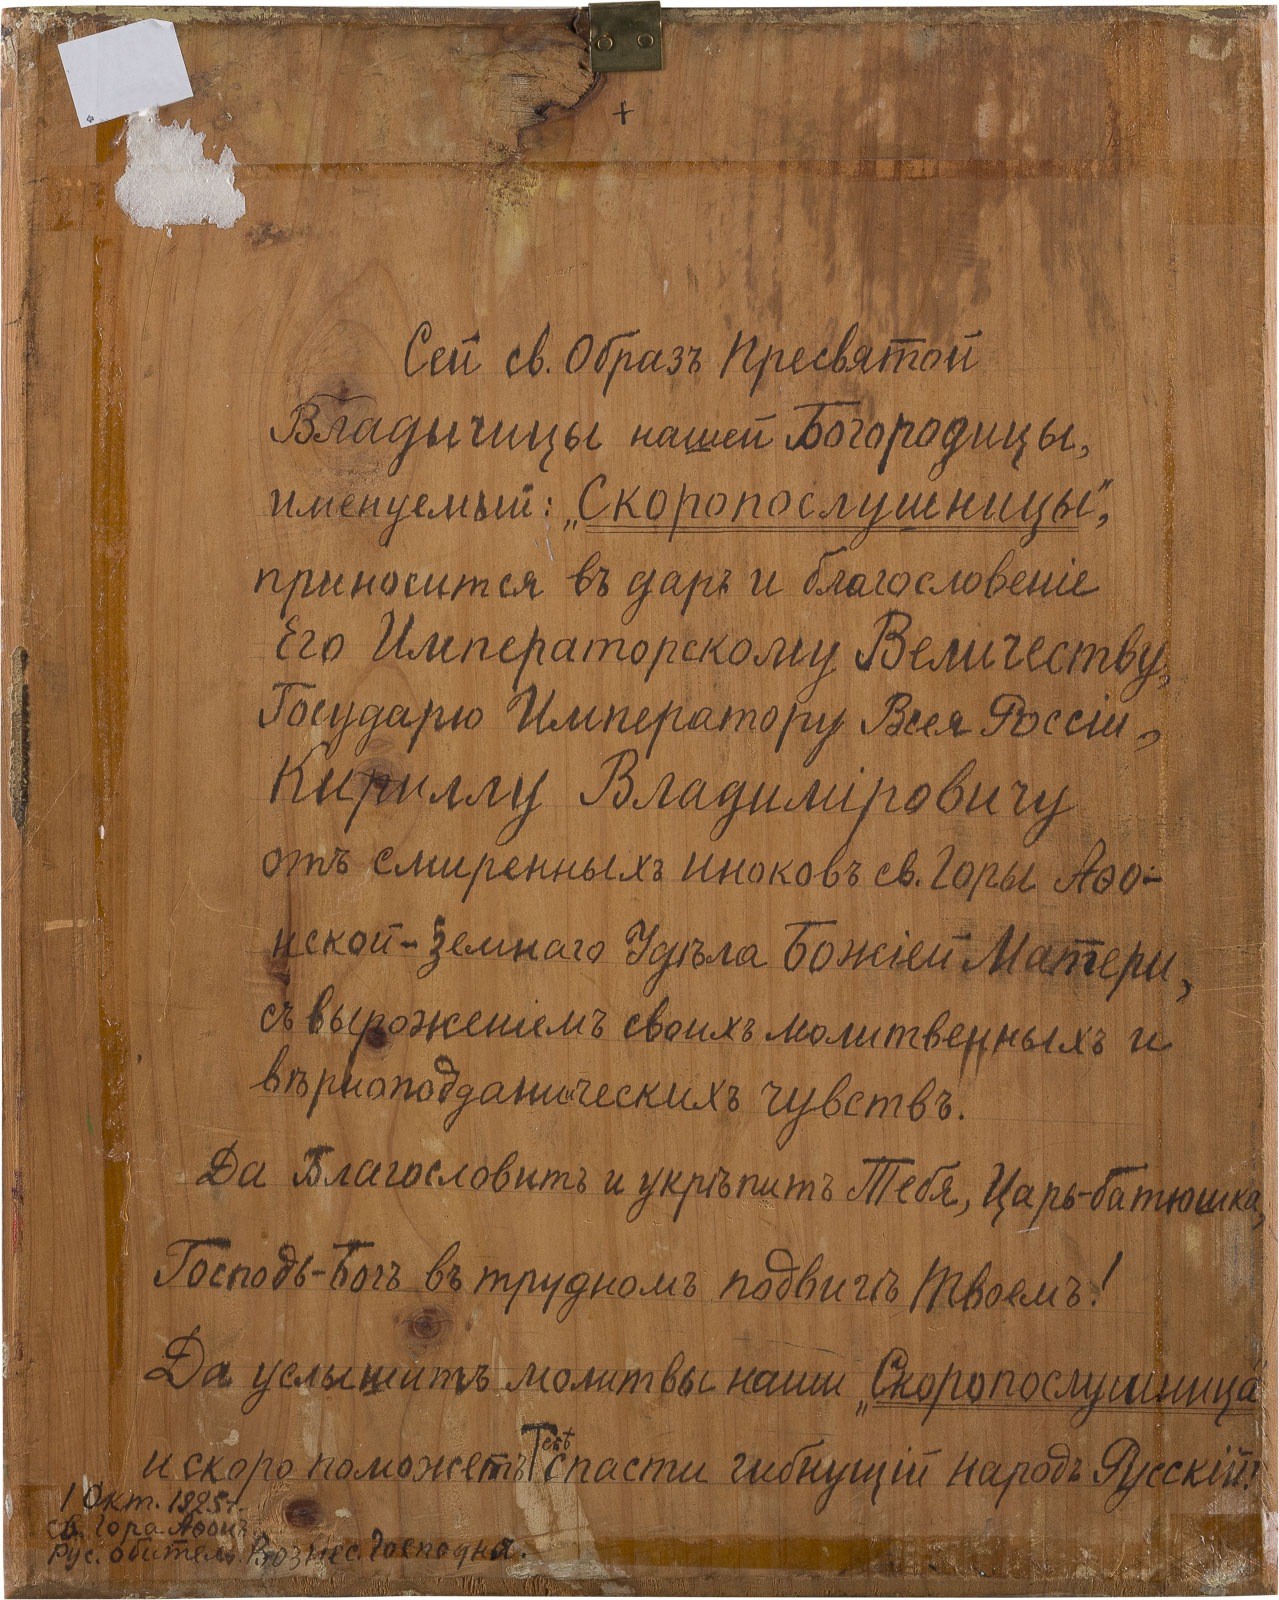 Сей св. Образъ Пресвятой
Владычицы нашей Богородицы,
именуемый: „Скоропослушницы",
приносится въ даръ и благословеніе
Его Императорскому Величеству,
Государю Императору Всея Россіи,
Кириллу Владиміровичу
отъ смиренныхъ иноковъ св. Горы Аѳо-
нской-Земнаго Удѣла Божіей Матери,
съ вырожениемъ своихъ молитвенныхъ и
вѣрноподданическихъ чувствъ.
Да Благословитъ и укрѣпитъ Тебя, Царь-батюшка,
Господь-Богъ въ трудномъ подвигѣ Твоемъ!
Да услышитъ молитвы наши „Скоропослушница"
и скоро поможетъ Тебѣ спасти гибнущій народъ Русскій!
1 Окт. 1925 г.
св. Гора Аѳонъ.
Рус. обитель Вознес. Господня.